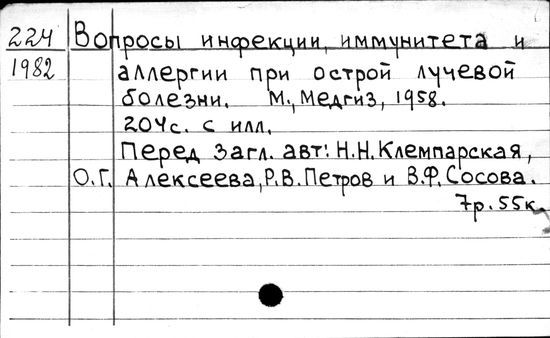 224 Вопросы инфекции, иммунитета и
1982 аллергии при острой лучевой
болезни. М., Медгиз, 1958.
204с. с илл.
Перед загл. авт: Н.Н.Клемпарская,
О.Г. Алексеева, Р.В.Петров и В.Ф.Сосова.
7р.55к.